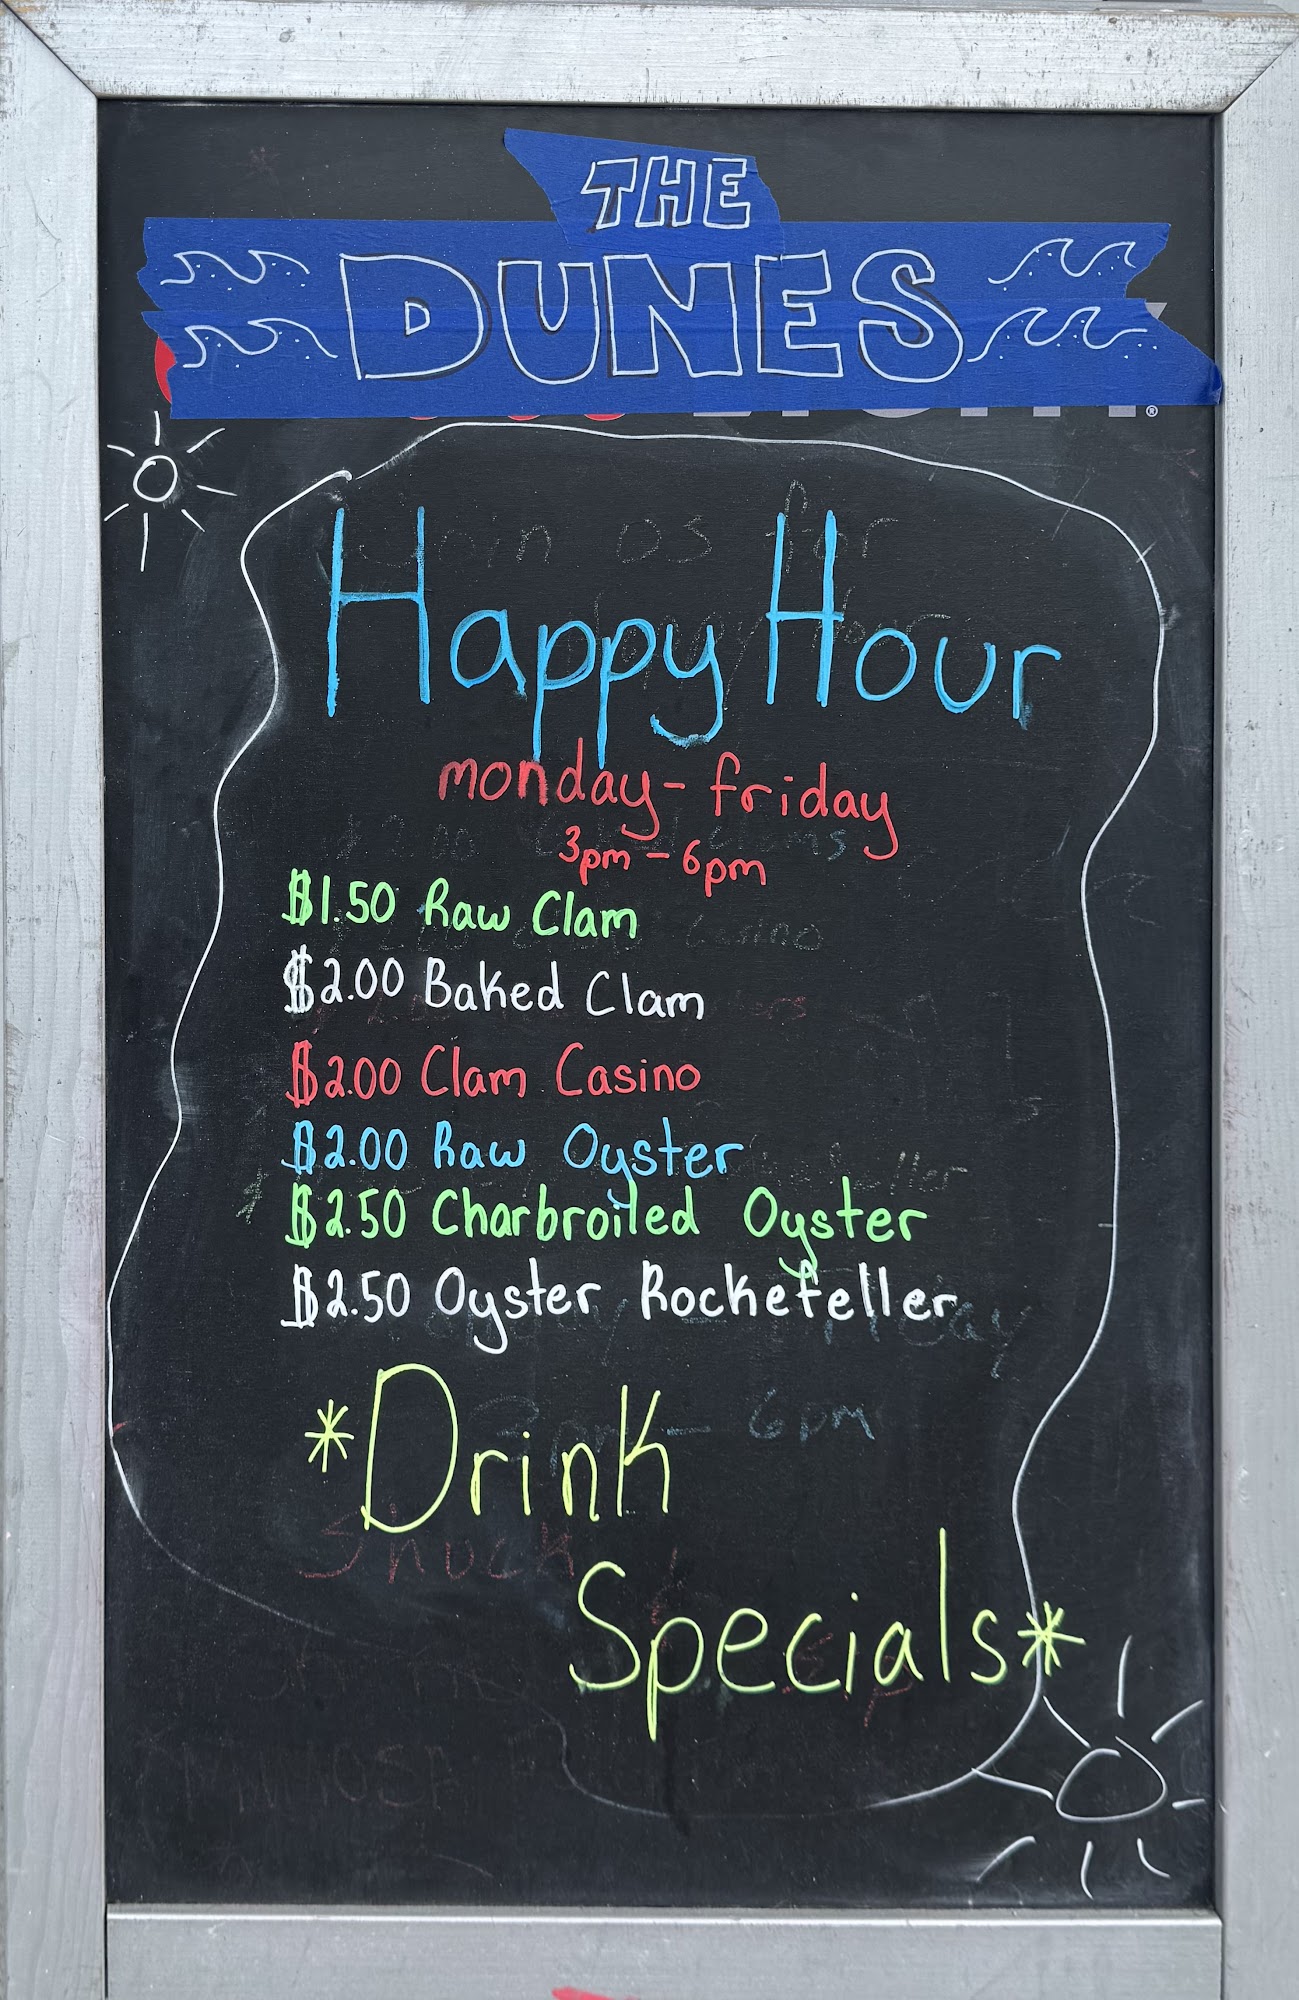 THE
DUNES
Happy Hour
monday - friday
3pm - 6pm
$1.50 Raw Clam
$2.00 Baked Clam
$2.00 Clam Casino
$2.00 Raw Oyster
$2.50 Charbroiled Oyster
$2.50 Oyster Rockefeller
*Drink
Specials*